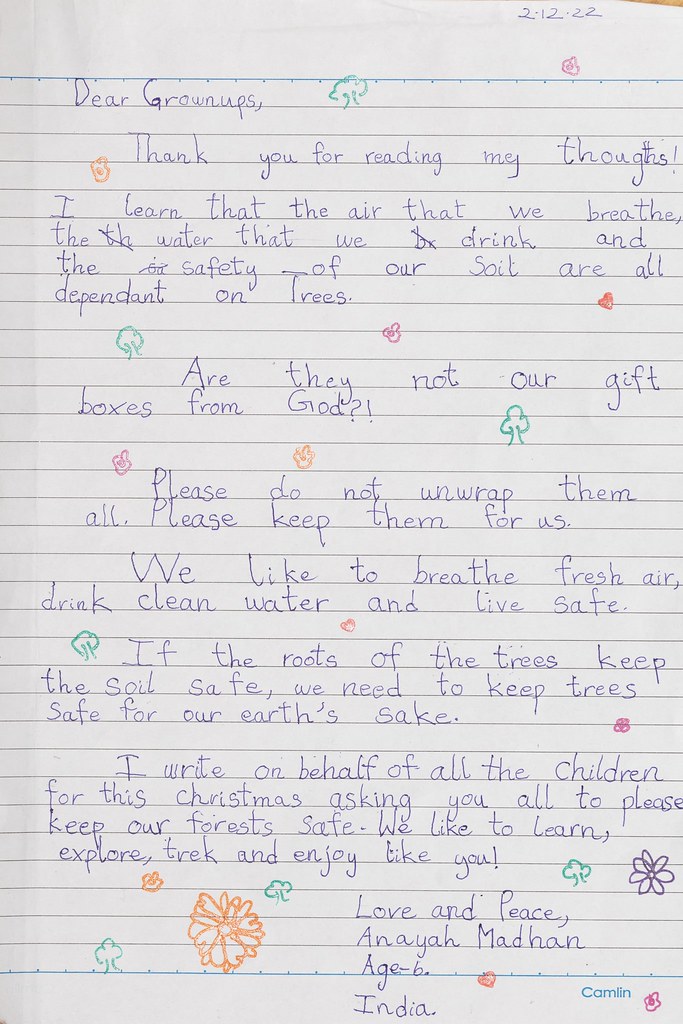 2.12.22
Dear Grownups,
Thank you for reading my thougths!
I learn that the air that we breathe,
the th water that we b drink and
the safety of our soil are all
dependant on Trees.
Are they not our gift
boxes from God?!
Please do not unwrap them
all. Please keep them for us.
We like to breathe fresh air,
drink clean water and live safe.
If the roots of the trees keep
the soil safe, we need to keep trees
safe for our earth's sake.
I write on behalf of all the children
for this christmas asking you all to please
keep our forests safe. We like to learn,
explore, trek and enjoy like you!
Love and Peace,
Anayah Madhan
Age-6.
Camlin
India.